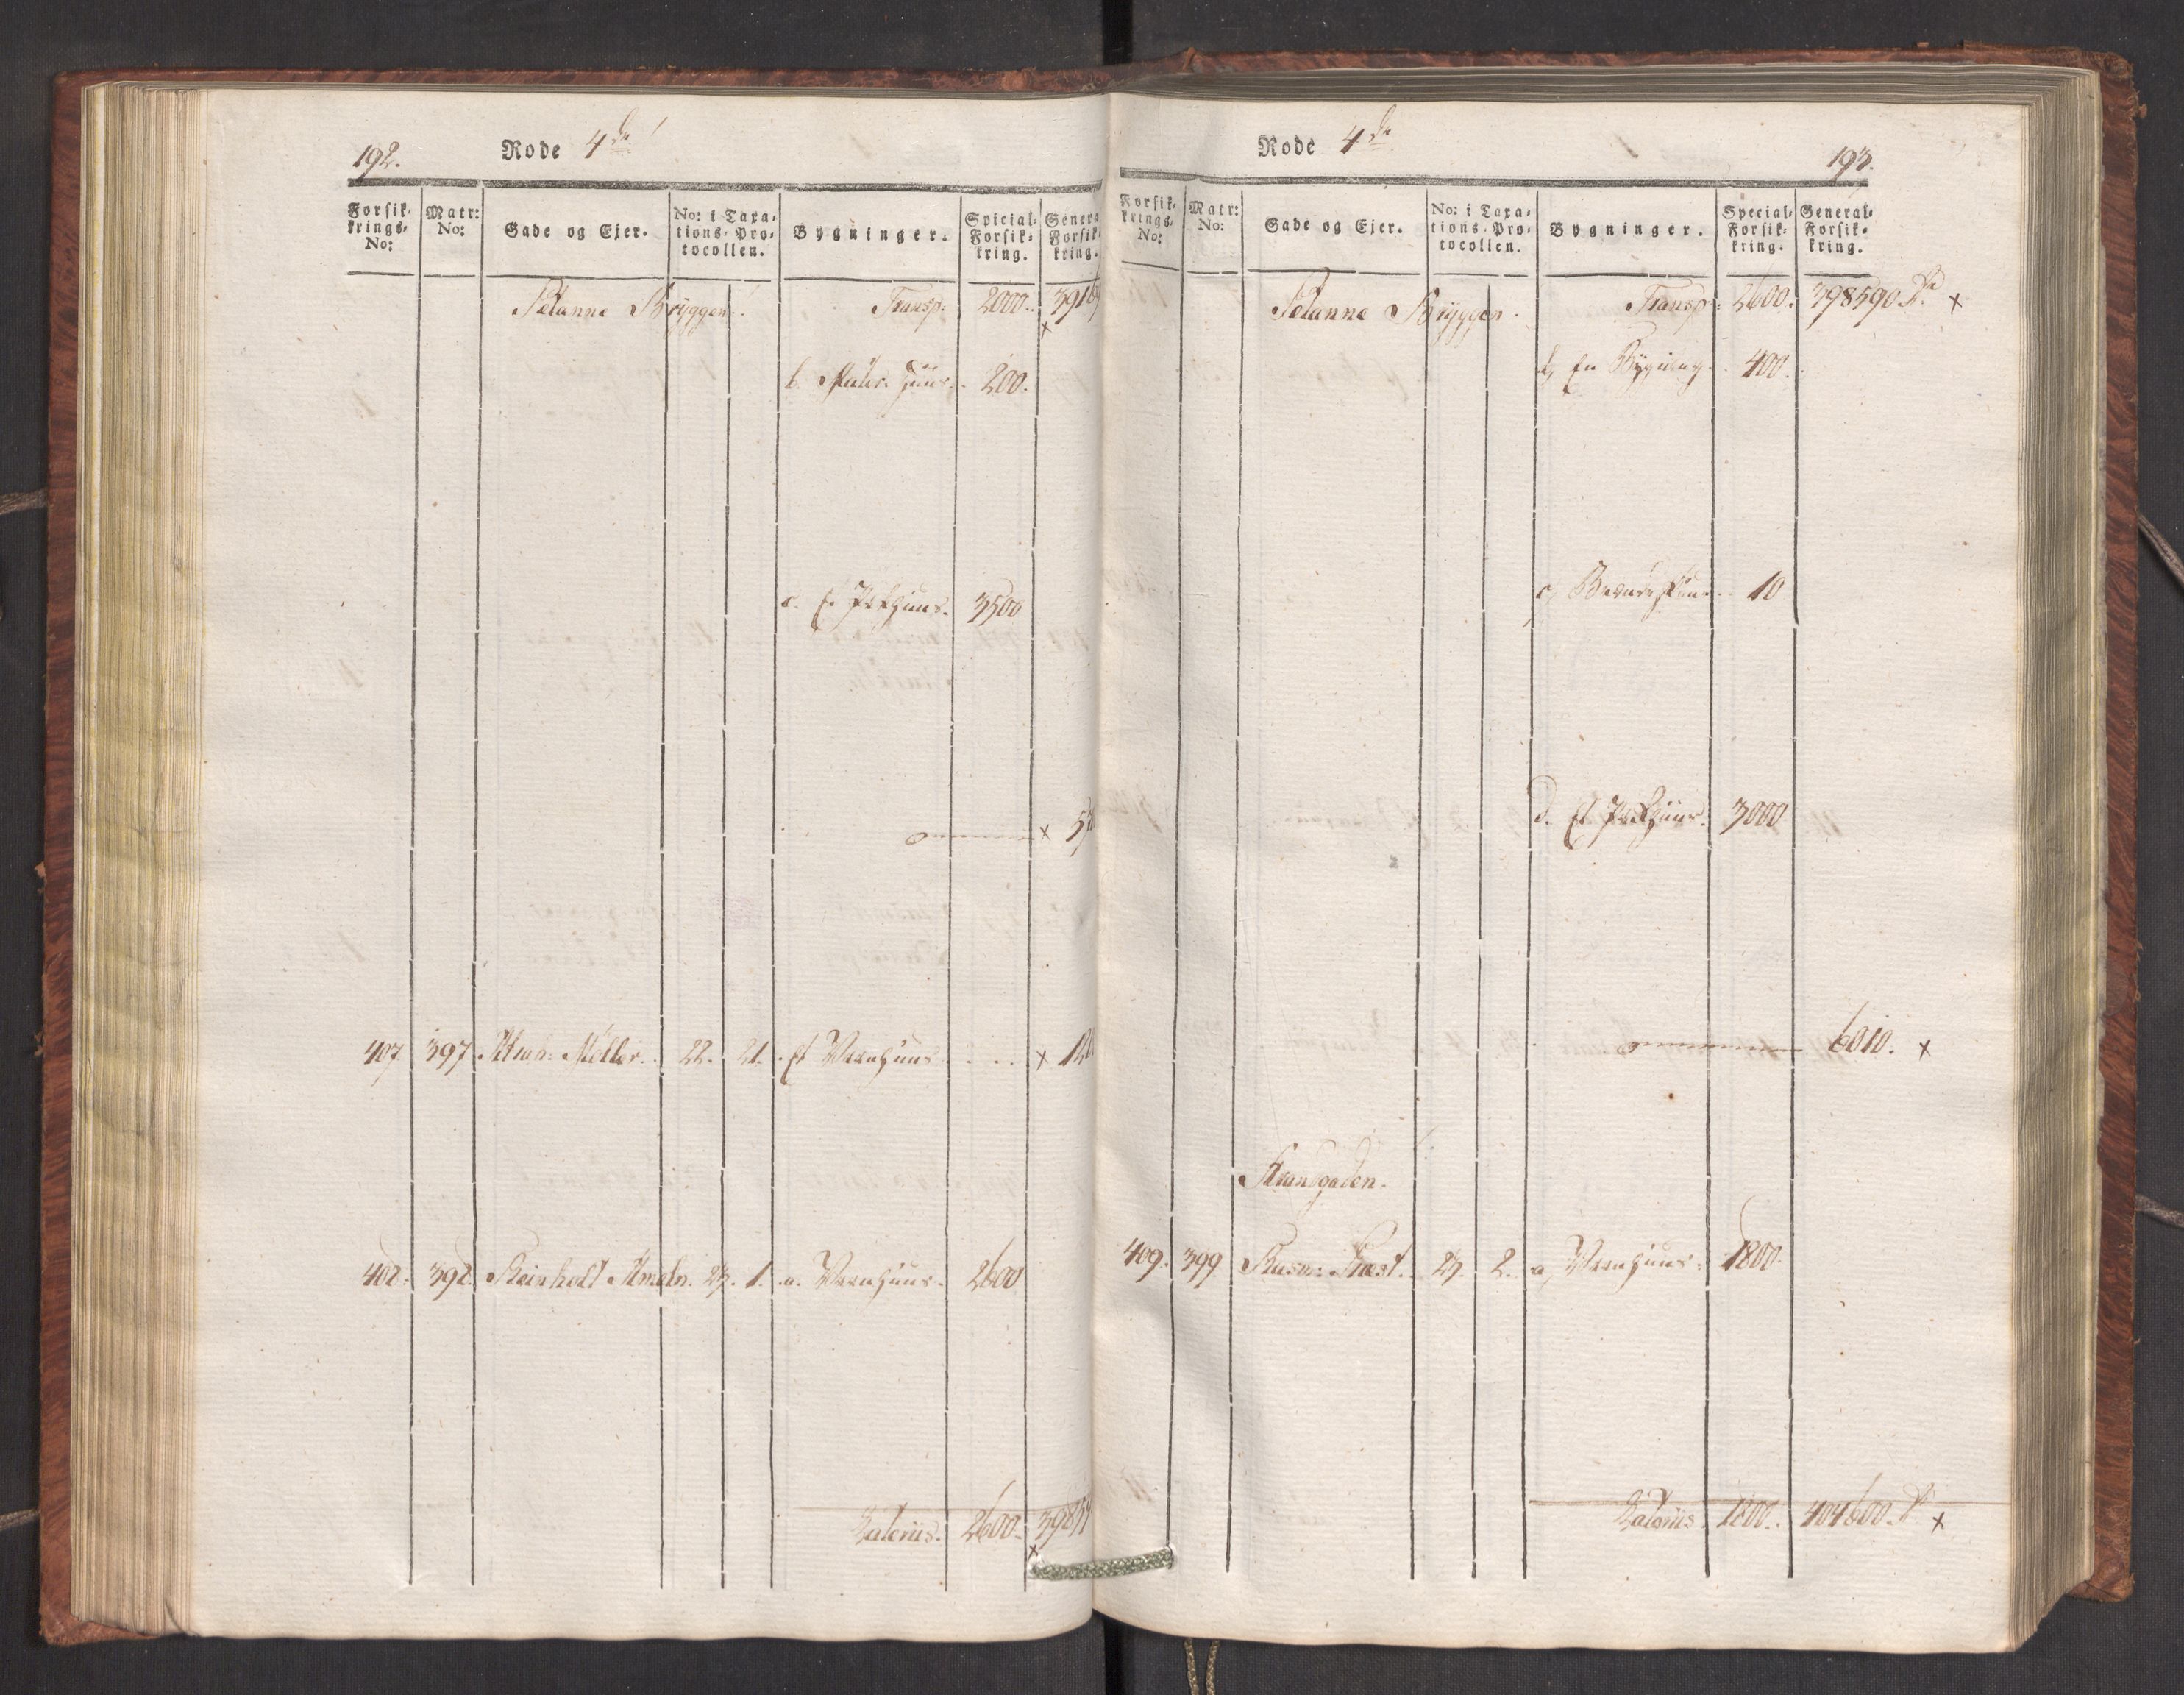 192.
Rode 4de
Forsik-
krings-
No:
Matr:
No:
Gade og Ejer.
No: i Taxa-
tions-Pro-
tocollen.
Bygninger.
Spicial-
Forsik-
kring.
Genera
Forsik
kring.
Bryggen. Transp: 2000.
b. 200.
c. Et Pakhuus. 3500
407. 397. Møller. 22. 21. Et Vaanhuus
402. 392. Reinholt 23. 1. a. Vaanhuus. 2600
Lateriis. 2600.
Rode 4de
193.
Forsik-
krings-
No:
Matr:
No:
Gade og Ejer.
No: i Taxa-
tions-Pro-
tocollen.
Bygninger.
Special-
Forsik-
kring.
General-
Forsik-
kring.
Bryggen. Transp: 2600. 398590. Rd x
b, En Bygning. 400.
c, 10
d. Et Pakhuus. 3000
6010. x
Strandgaden.
409. 399 23. 2. a, Vaanhuus. 1800.
Lateriis. 1800. 404600. Rd x